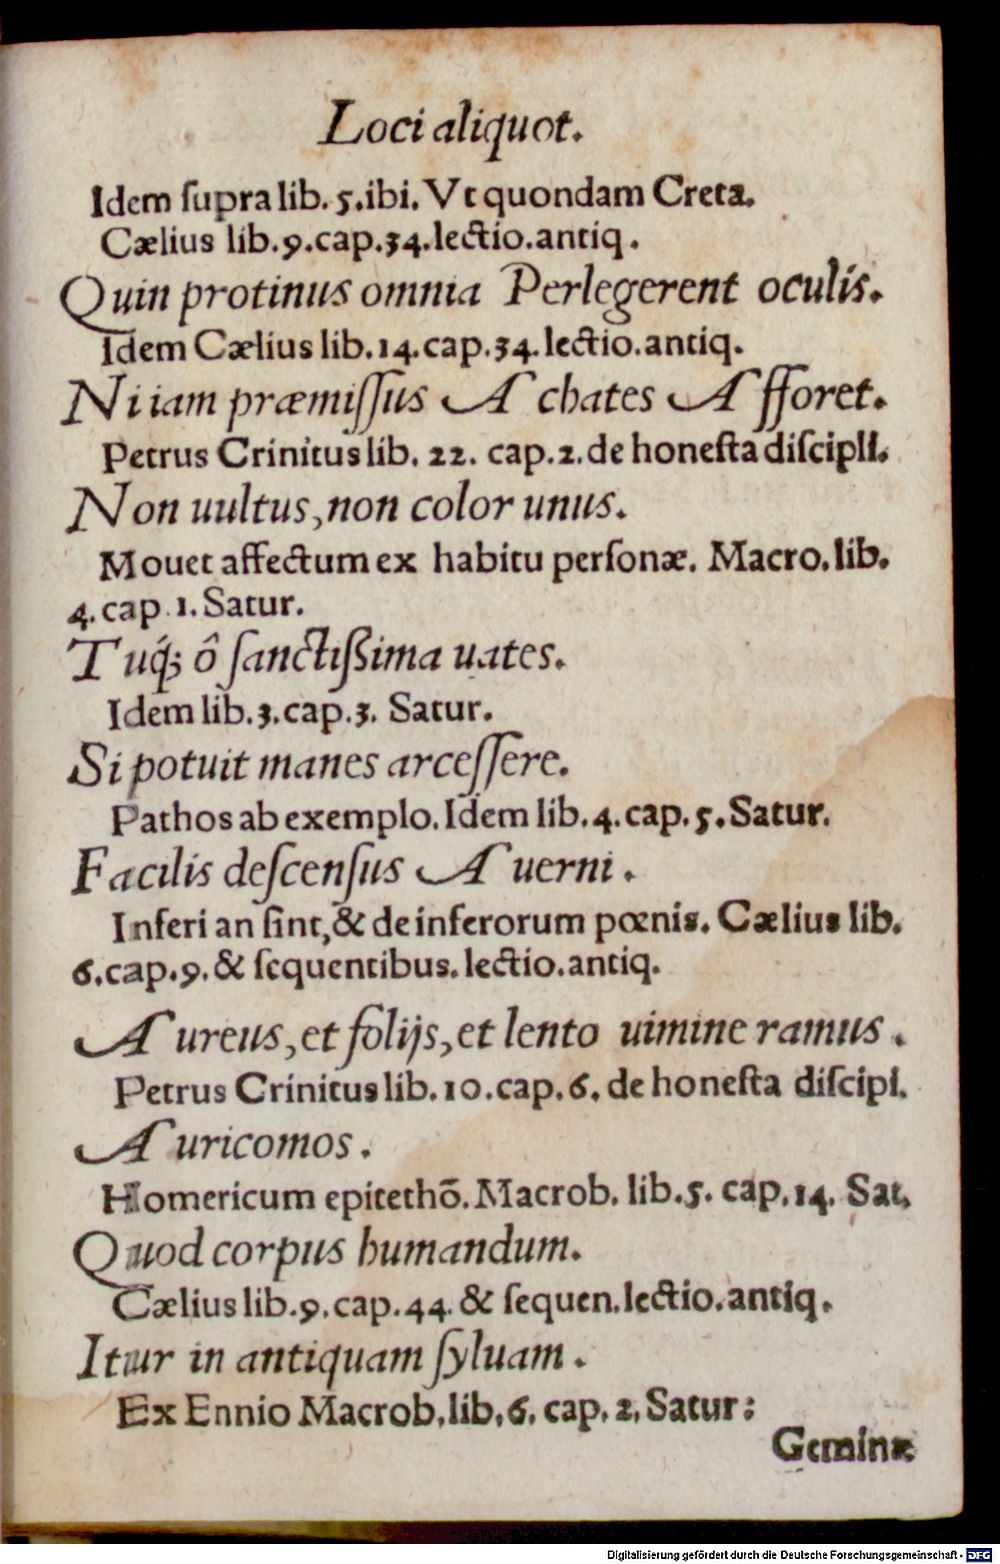 Loci aliquot.
Idem ſupra lib. 5. ibi. Vt quondam Creta.
Cælius lib. 9. cap. 34. lectio. antiq.
Quin protinus omnia Perlegerent oculis.
Idem Cælius lib. 14. cap. 34. lectio. antiq.
Ni iam præmiſſus Achates Afforet.
Petrus Crinitus lib. 22. cap. 2. de honeſta diſcipli.
Non uultus, non color unus.
Mouet affectum ex habitu perſonæ. Macro. lib.
4. cap. 1. Satur.
Tuq́; ô ſanctißima uates.
Idem lib. 3. cap. 3. Satur.
Si potuit manes arceſſere.
Pathos ab exemplo. Idem lib. 4. cap. 5. Satur.
Facilis deſcenſus Auerni.
Inferi an ſint, & de inferorum pœnis. Cælius lib.
6. cap. 9. & ſequentibus. lectio. antiq.
Aureus, et folijs, et lento uimine ramus.
Petrus Crinitus lib. 10. cap. 6. de honeſta diſcipl.
Auricomos.
Homericum epitethõ. Macrob. lib. 5. cap. 14. Sat.
Quod corpus humandum.
Cælius lib. 9. cap. 44. & ſequen. lectio. antiq.
Itur in antiquam ſyluam.
Ex Ennio Macrob. lib. 6. cap. 2. Satur:
Geminæ
Digitalisierung gefördert durch die Deutsche Forschungsgemeinschaft - DFG